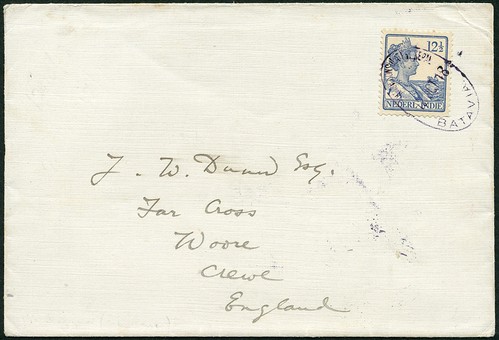 12½
NEDERL-INDIË
18
BATAVIA
J. W. Dunn Esq.
Far Cross
Woore
Crewe
England